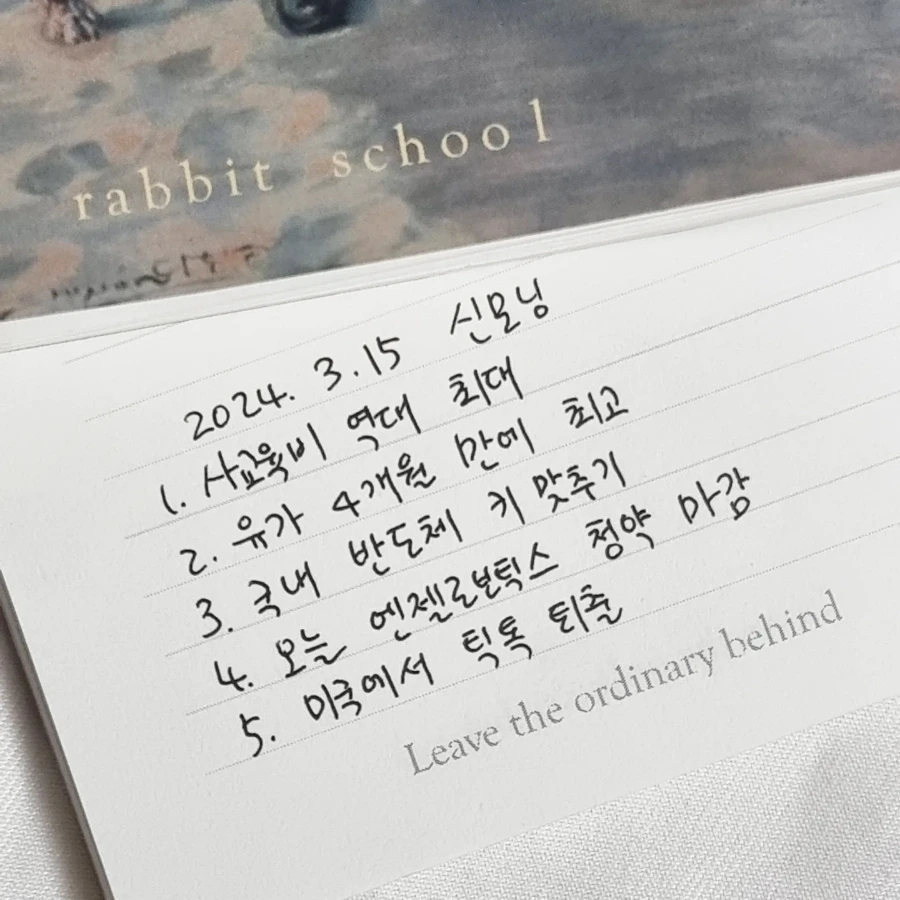 rabbit school
2024. 3.15 신모닝
1. 사교육비 역대 최대
2. 유가 4개월 만에 최고
3. 국내 반도체 키 맞추기
4. 오늘 엔젤로보틱스 청약 마감
5. 미국에서 틱톡 퇴출
Leave the ordinary behind